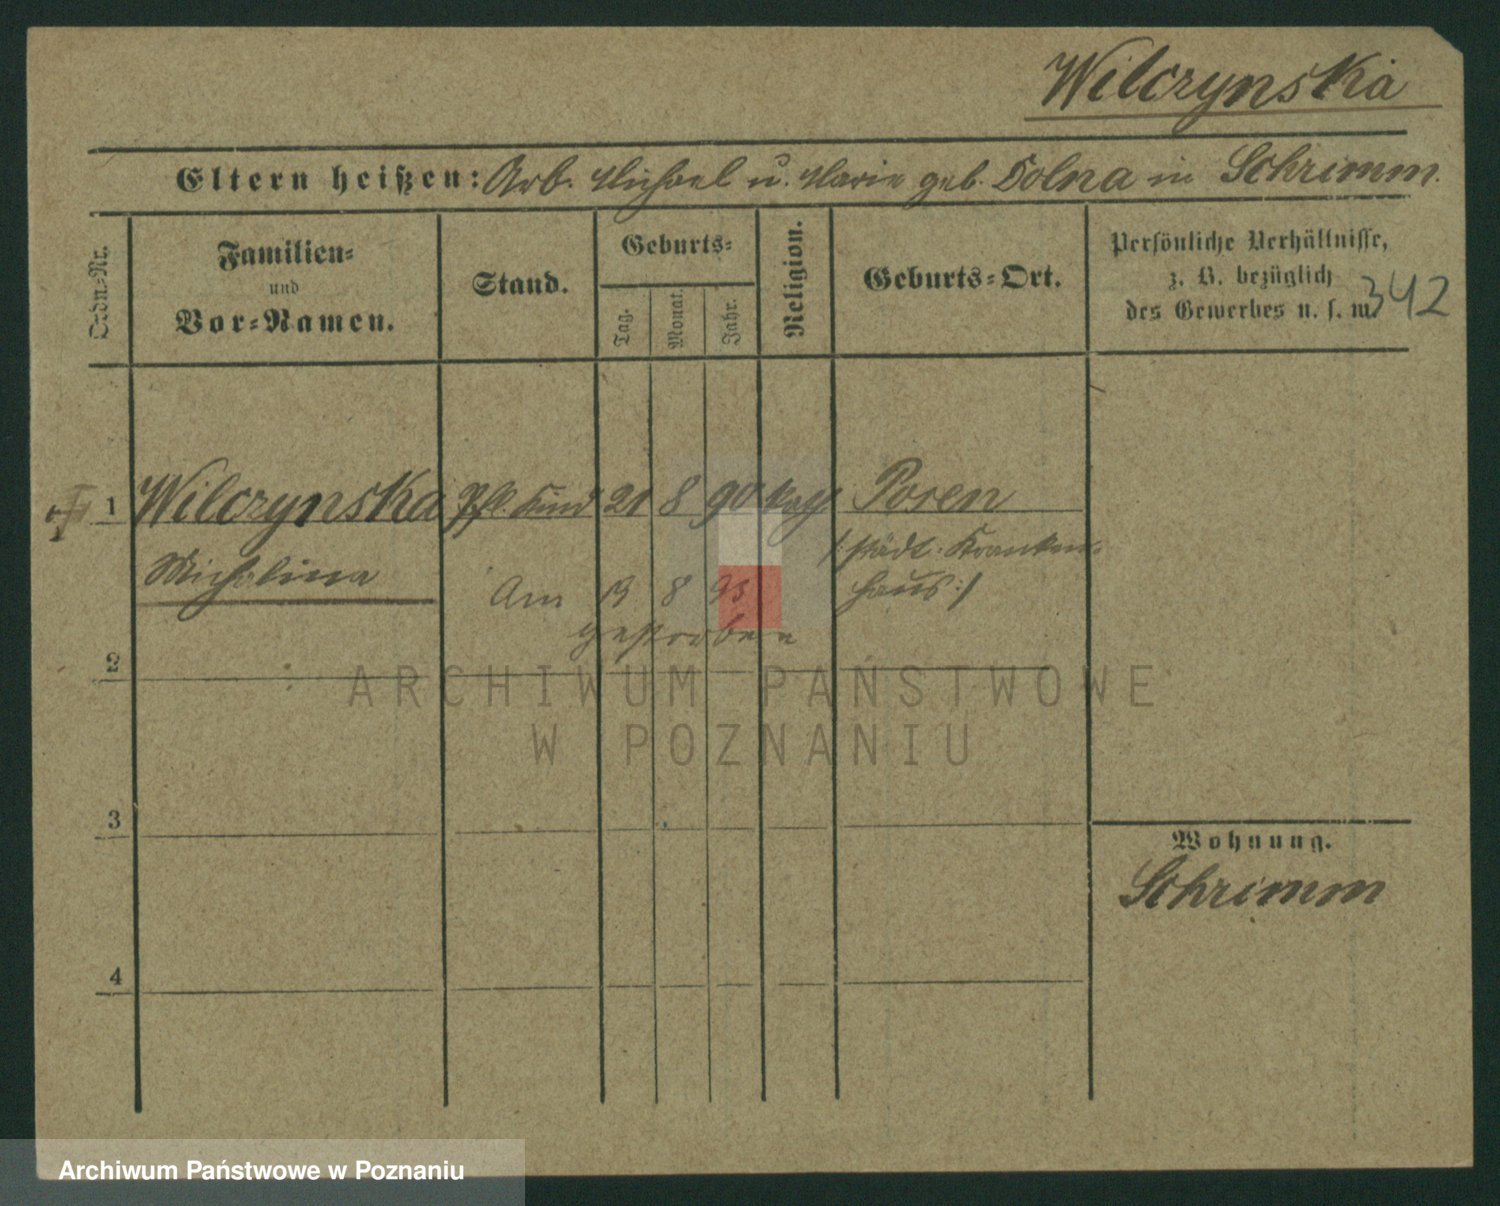 Wilczynska
Eltern heißen: Arb. Michael u. Marie geb. Dolna in Schrimm.
Ordn-Nr.
Familien-
und
Vor-Namen.
Stand.
Geburts-
Tag.
Monat.
Jahr.
Religion.
Geburts-Ort.
Persönliche Verhältnisse,
z. B. bezüglich
des Gewerbes u. s. w.
342
1 Wilczynska Pfl. Kind 21 8 90 kath Posen
Michalina
(: städt. Kranken-
haus :)
Am 19 8 93
gestorben
2
ARCHIWUM PAŃSTWOWE
W POZNANIU
3
Wohnung.
Schrimm
4
Archiwum Państwowe w Poznaniu